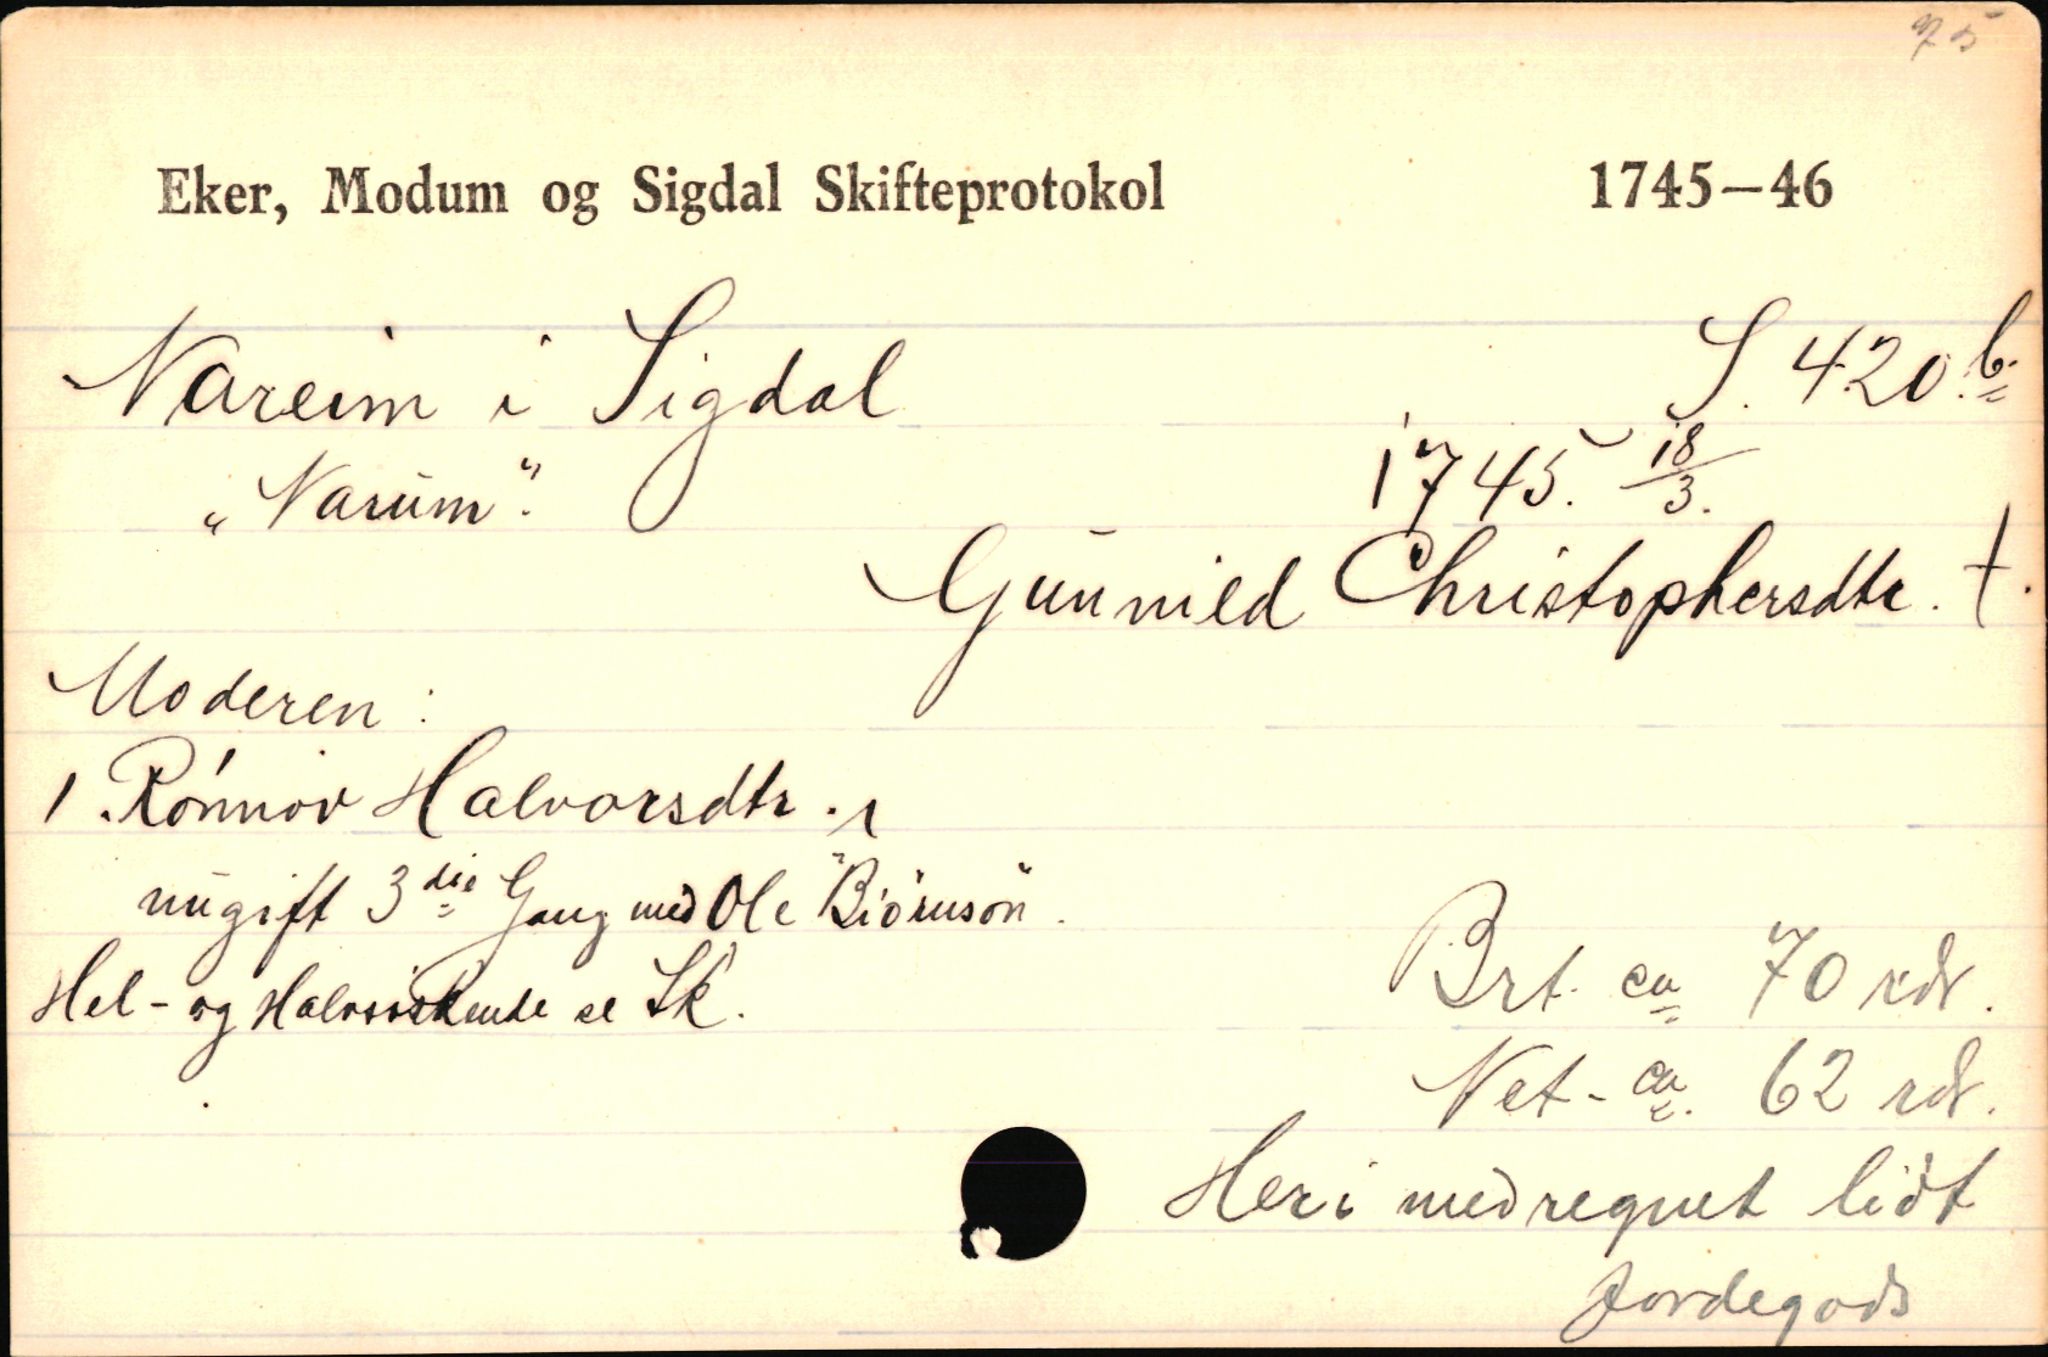 75
Eker, Modum og Sigdal Skifteprotokol 1745–46
Nareim i Sigdal S. 420.b.
"Narum". 1745. 18/3.
Gunnild Christophersdtr. †.
Moderen:
1. Rönnov Halvorsdtr.
nu gift 3die Gang med Ole "Biörnsön".
Hel- og Halvsöskende se Sk.
Brt. ca 70 rdr.
Net- ca. 62 rdr.
Heri medregnet lidt
Jordegods